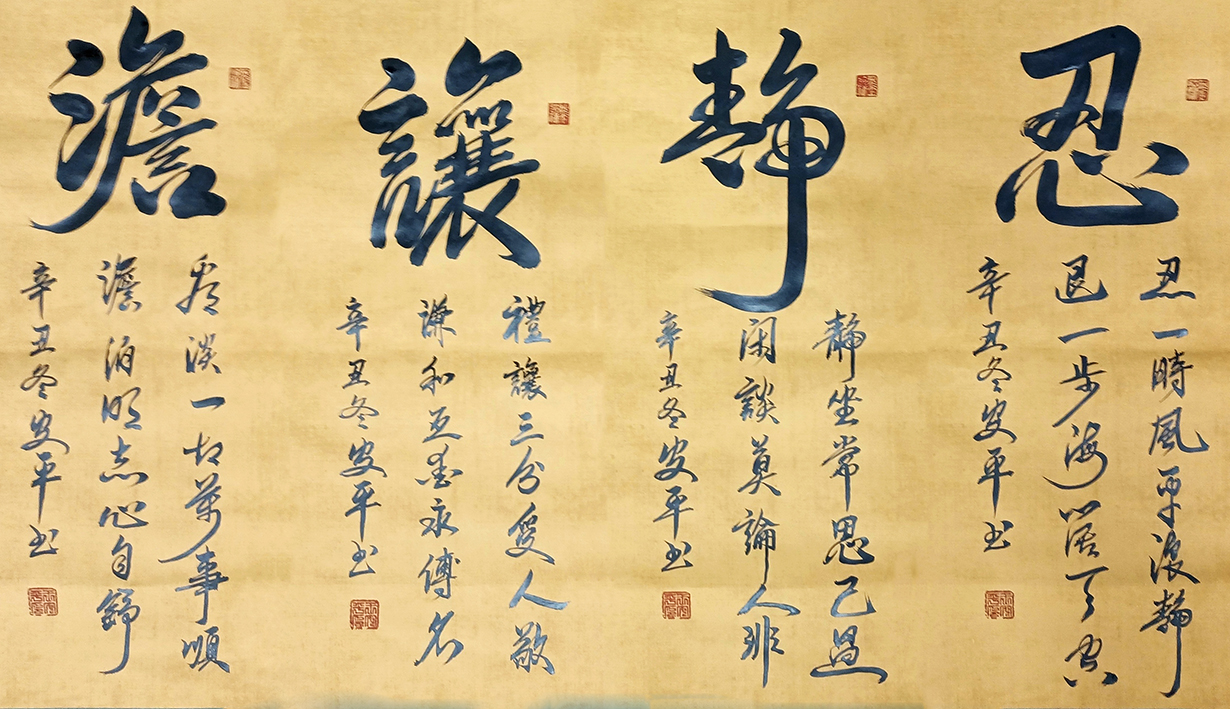 忍
忍一時風平浪静
退一步海阔天空
辛丑冬安平书
静
静坐常思己過
闲談莫論人非
辛丑冬安平书
讓
禮讓三分受人敬
謙和互爱永傳名
辛丑冬安平书
澹
看淡一切萬事順
澹泊明志心自舒
辛丑冬安平书